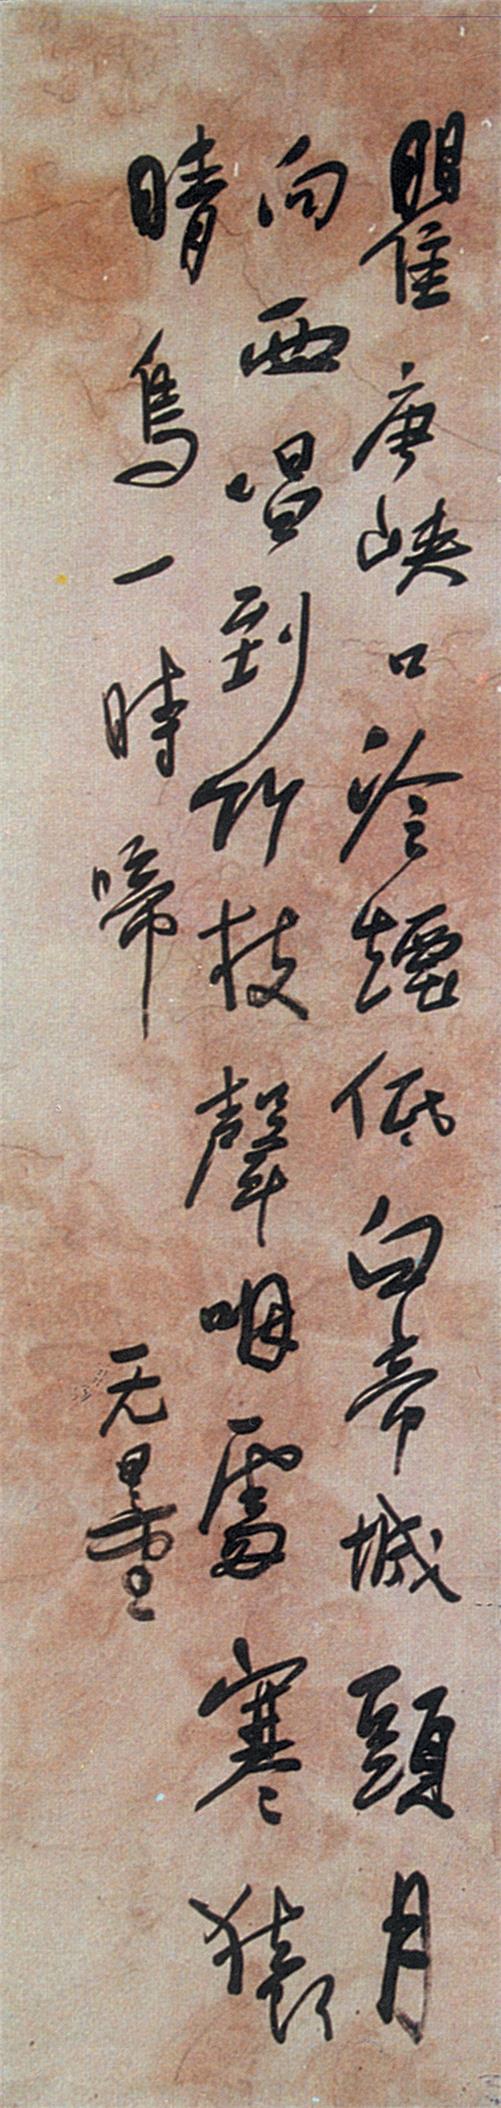 瞿唐峡口冷煙低白帝城頭月
向西唱到竹枝聲咽處寒猿
晴鳥一時啼 无量